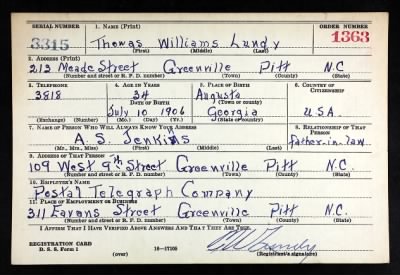 SERIAL NUMBER 1. NAME (Print) ORDER NUMBER
3315 Thomas Williams Lundy 1363
(First) (Middle) (Last)
2. ADDRESS (Print)
213 Meade Street Greenville Pitt N.C.
(Number and street or R. F. D. number) (Town) (County) (State)
3. TELEPHONE 4. AGE IN YEARS 5. PLACE OF BIRTH 6. COUNTRY OF CITIZENSHIP
3818 34 Augusta
DATE OF BIRTH (Town or county)
July 10 1906 Georgia U.S.A.
(Exchange) (Number) (Mo.) (Day) (Yr.) (State or country)
7. NAME OF PERSON WHO WILL ALWAYS KNOW YOUR ADDRESS 8. RELATIONSHIP OF THAT PERSON
A. S. Jenkins father-in-law
(Mr., Mrs., Miss) (First) (Middle) (Last)
9. ADDRESS OF THAT PERSON
109 West 9th Street Greenville Pitt N.C.
(Number and street or R. F. D. number) (Town) (County) (State)
10. EMPLOYER'S NAME
Postal Telegraph Company
11. PLACE OF EMPLOYMENT OR BUSINESS
311 Eavans Street Greenville Pitt N.C.
(Number and street or R. F. D. number) (Town) (County) (State)
I AFFIRM THAT I HAVE VERIFIED ABOVE ANSWERS AND THAT THEY ARE TRUE.
REGISTRATION CARD
D. S. S. Form 1 (over) 16-17105 (Registrant's signature)